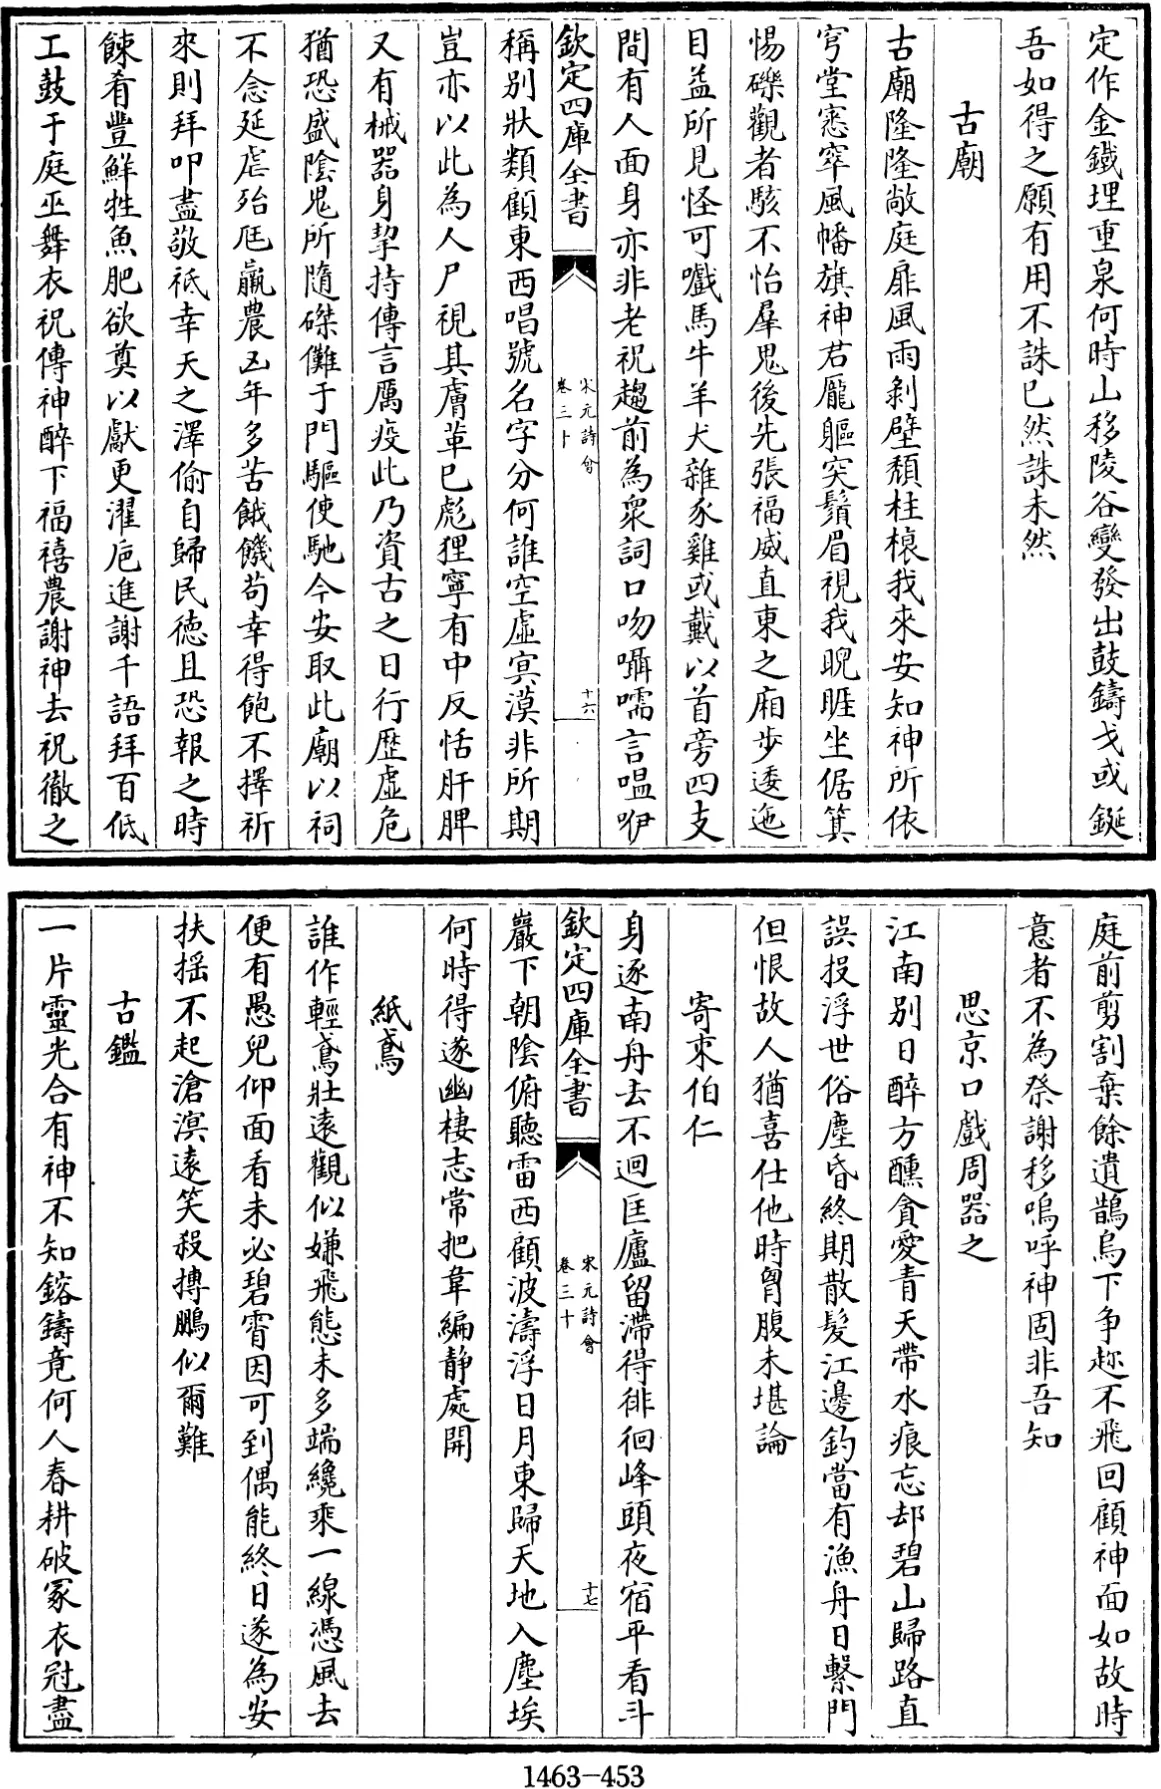 定作金鐵埋重泉何時山移陵谷變發出鼓鑄戈或鋋
吾如得之願有用不誅已然誅未然
古廟
古廟隆隆敞庭扉風雨剥壁頽柱榱我來安知神所依
穹堂窓窂風幡旗神君龎軀突鬚眉視我睨睚坐倨箕
惕礫觀者駭不怡羣鬼後先張福威直東之廂步逶迤
目益所見怪可嚱馬牛羊犬雜豕雞或戴以首旁四支
間有人面身亦非老祝趨前為衆詞口吻囁嚅言嗢咿
欽定四庫全書
宋元詩會
卷三十
十六
稱別狀類顧東西唱號名字分何誰空虛冥漠非所期
豈亦以此為人尸視其膚革已彪狸寧有中反恬肝脾
又有械器身挐持傳言厲疫此乃資古之日行歴虛危
猶恐盛陰鬼所隨磔儺于門驅使馳今安取此廟以祠
不念延虐殆尫羸農凶年多苦餓饑苟幸得飽不擇祈
來則拜叩盡敬祗幸天之澤偷自歸民徳且恐報之時
餗肴豐鮮牲魚肥欲奠以獻更濯巵進謝千語拜百低
工鼓于庭巫舞衣祝傳神醉下福禧農謝神去祝徹之
庭前剪割棄餘遺鵲烏下争趂不飛回顧神面如故時
意者不為祭謝移嗚呼神固非吾知
思京口戲周器之
江南別日醉方醺貪愛青天帶水痕忘却碧山歸路直
誤投浮世俗塵昏終期散髪江邊釣當有漁舟日繫門
但恨故人猶喜仕他時胷腹未堪論
寄朿伯仁
身逐南舟去不迴匡廬留滯得徘徊峰頭夜宿平看斗
欽定四庫全書
宋元詩會
卷三十
十七
巖下朝陰俯聽雷西顧波濤浮日月東歸天地入塵埃
何時得遂幽棲志常把韋編静處開
紙鳶
誰作輕鳶壯遠觀似嫌飛態未多端纔乘一線憑風去
便有愚兒仰面看未必碧霄因可到偶能終日遂為安
扶揺不起滄溟逺笑殺摶鵬似爾難
古鑑
一片靈光合有神不知鎔鑄竟何人春耕破冢衣冠盡
1463-453